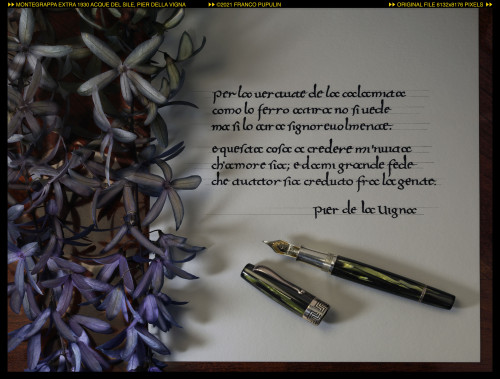 MONTEGRAPPA EXTRA 1930 ACQUE DEL SILE, PIER DELLA VIGNA
©2021 FRANCO PUPULIN
ORIGINAL FILE 6132x8176 PIXELS
per la uertute de la calamita
como lo ferro atira no si uede
ma si lo tira signoreuolmente:
e questa cosa a credere m'nuita
ch'amore sia; e dami grande fede
che tuttor sia creduto fra la gente.
pier de la Uigna